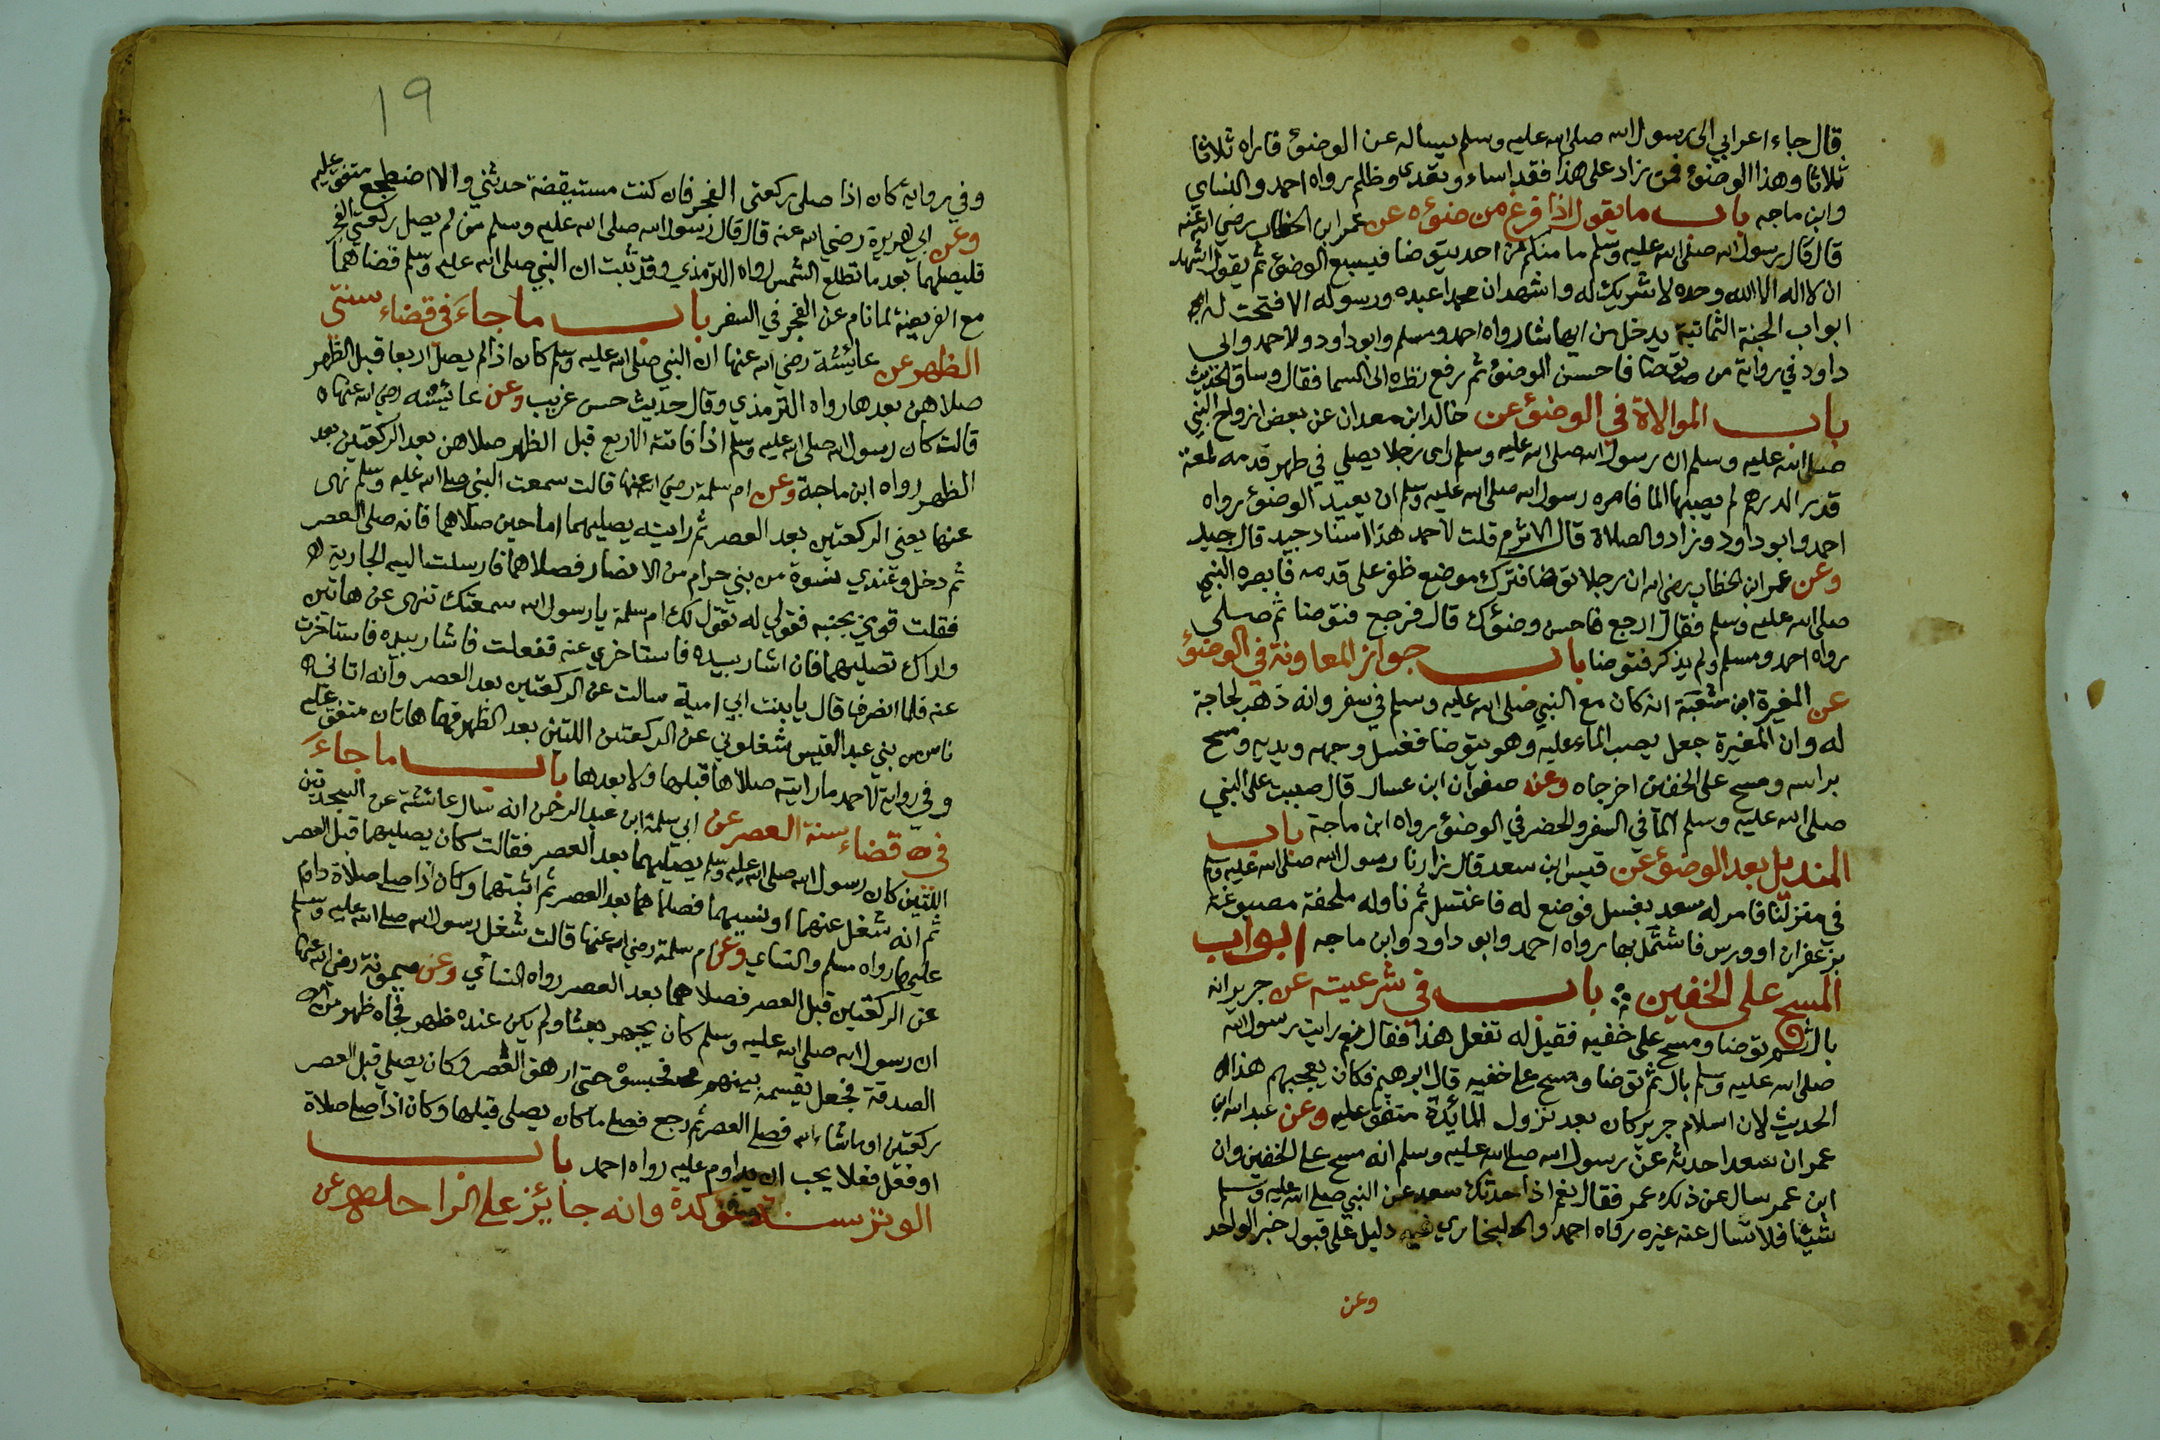 قال جاء اعرابي الى رسول الله صلى الله عليه وسلم يساله عن الوضوء فاراه ثلاثا
ثلاثا وهذا الوضوء فمن زاد على هذا فقد اساء وتعدى وظلم رواه احمد والنساي
وابن ماجه باب ما يقول اذا فرغ من ضوءه عن عمر ابن الخطاب رضي الله عنه
قال قال رسول الله صلى الله عليه وسلم ما منكم من احد يتوضا فيسبغ الوضوء ثم يقول اشهد
ان لا اله الا الله وحده لا شريك له واشهد ان محمدا عبده ورسوله الا فتحت له
ابواب الجنة الثمانية يدخل من ايها شا رواه احمد ومسلم وابو داود ولاحمد وابي
داود في رواية من توضا فاحسن الوضوء ثم رفع نظره الى السما فقال وساق الحديث
باب الموالاة في الوضوء عن خالد ابن معدان عن بعض ازواج النبي
صلى الله عليه وسلم ان رسول الله صلى الله عليه وسلم راى رجلا يصلي في ظهر قدمه لمعة
قدر الدرهم لم يصبها الما فامره رسول الله صلى الله عليه وسلم ان يعيد الوضوء رواه
احمد وابو داود وزاد والصلاة قال الاثرم قلت لاحمد هذا اسناد جيد قال جيد
وعن عمر ابن الخطاب رضي الله ان رجلا توضا فترك موضع ظفر على قدمه فابصره النبي
صلى الله عليه وسلم فقال ارجع فاحسن وضوءك قال فرجع فتوضا ثم صلى
رواه احمد ومسلم ولم يذكر فتوضا باب جواز المعاونة في الوضوء
عن المغيرة ابن شعبة انه كان مع النبي صلى الله عليه وسلم في سفر وانه ذهب لحاجة
له وان المغيرة جعل يصب الماء عليه وهو يتوضا فغسل وجهه ويديه ومسح
براسه ومسح على الخفين اخرجاه وعن صفوان ابن عسال قال صببت على النبي
صلى الله عليه وسلم الما في السفر والحضر في الوضوء رواه ابن ماجة باب
المنديل بعد الوضوء عن قيس ابن سعد قال زارنا رسول الله صلى الله عليه وسلم
في منزلنا فامر له سعد بغسل فوضع له فاغتسل ثم ناوله ملحفة مصبوغة
بزعفران او ورس فاشتمل بها رواه احمد وابو داود وابن ماجه ابواب
المسح على الخفين باب في شرعيته عن جرير انه
بال ثم توضا ومسح على خفيه فقيل له تفعل هذا فقال نعم رايت رسول الله
صلى الله عليه وسلم بال ثم توضا ومسح على خفيه قال ابرهيم فكان يعجبهم هذا
الحديث لان اسلام جرير كان بعد نزول المائدة متفق عليه وعن عبد الله ابن
عمر ان سعدا حدثه عن رسول الله صلى الله عليه وسلم انه مسح على الخفين وان
ابن عمر سال عن ذلك عمر فقال نعم اذا حدثك سعد عن النبي صلى الله عليه وسلم
شيئا فلا تسال عنه غيره رواه احمد والبخاري فيه دليل على قبول خبر الواحد
وعن
١٩
وفي رواية كان اذا صلى ركعتى الفجر فان كنت مستيقضة حدثني والا اضطجع متفق عليه
وعن ابي هريرة رضي الله عنه قال قال رسول الله صلى الله عليه وسلم من لم يصل ركعتي الفجر
فليصلهما بعد ما تطلع الشمس رواه الترمذي وقد ثبت ان النبي صلى الله عليه وسلم قضاهما
مع الفريضة لما نام عن الفجر في السفر باب ما جاء في قضاء سنتي
الظهر عن عائشة رضي الله عنها ان النبي صلى الله عليه وسلم كان اذا لم يصل اربعا قبل الظهر
صلاهن بعدها رواه الترمذي وقال حديث حسن غريب وعن عائيشه رضي الله عنها
قالت كان رسول الله صلى الله عليه وسلم اذا فاتته الاربع قبل الظهر صلاهن بعد الركعتين بعد
الظهر رواه ابن ماجة وعن ام سلمة رضي الله عنها قالت سمعت النبي صلى الله عليه وسلم نهى
عنها يعني الركعتين بعد العصر ثم رايته يصليهما اما حين صلاهما فانه صلى العصر
ثم دخل وعندي نسوة من بني حرام من الانصار فصلاهما فارسلت اليه الجارية
فقلت قومي بجنبه فقولي له تقول لك ام سلمة يا رسول الله سمعتك تنهى عن هاتين
واراك تصليهما فان اشار بيده فاستاخري عنه ففعلت فاشار بيده فاستاخرت
عنه فلما انصرف قال يا بنت ابي امية سالت عن الركعتين بعد العصر وانه اتاني
ناس من بني عبد القيس شغلوني عن الركعتين اللتين بعد الظهر فهما هاتان متفق عليه
وفي رواية لاحمد ما رايته صلاها قبلها ولا بعدها باب ما جاء
في قضاء سنة العصر عن ابي سلمة ابن عبد الرحمن انه سال عائشة عن السجدتين
اللتين كان رسول الله صلى الله عليه وسلم يصليهما بعد العصر فقالت كان يصليهما قبل العصر
ثم انه شغل عنهما او نسيهما فصلاهما بعد العصر ثم اثبتهما وكان اذا صلى صلاة داوم
عليها رواه مسلم والنساي وعن ام سلمة رضي الله عنها قالت شغل رسول الله صلى الله عليه وسلم
عن الركعتين قبل العصر فصلاهما بعد العصر رواه النسأي وعن ميمونة رضي الله عنها
ان رسول الله صلى الله عليه وسلم كان يجهز بعثا ولم يكن عنده ظهر فجاه ظهر من
الصدقة فجعل يقسمه بينهم فحبسوه حتى ارهق العصر وكان يصلي قبل العصر
ركعتين او ما شاء الله فصلى العصر ثم رجع فصلى ما كان يصلي قبلها وكان اذا صلى صلاة
او فعل فعلا يحب ان يداوم عليه رواه احمد باب
الوتر سنة مؤكدة وانه جائز على الراحلة عن